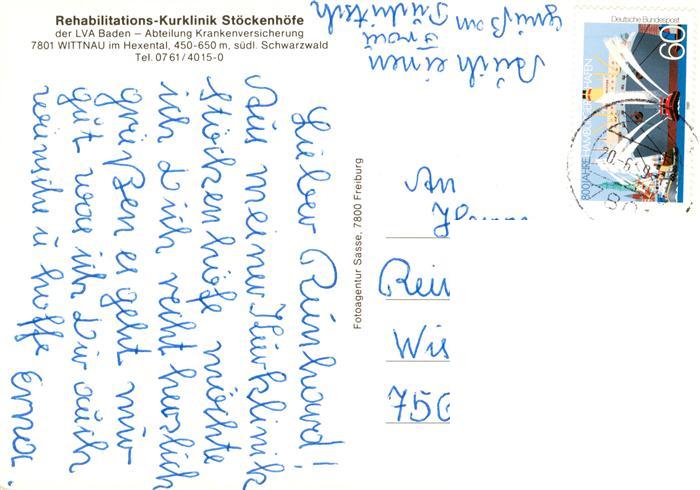 Rehabilitations-Kurklinik Stöckenhöfe
der LVA Baden – Abteilung Krankenversicherung
7801 WITTNAU im Hexental, 450-650 m, südl. Schwarzwald
Tel. 07 61 / 4015-0
Lieber Reinhard!
Aus meiner Kurklinik
Stöckenhöfe möchte
ich dich recht herzlich
grüßen es geht mir
gut was ich Dir auch
wünsche u hoffe Erna.
Auch einen
Gruß an Frau
Fotoagentur Sasse, 7800 Freiburg
Deutsche Bundespost
60
800 JAHRE HAMBURGER HAFEN
20.-6.-9
An
Herrn
Rei
Wis
750